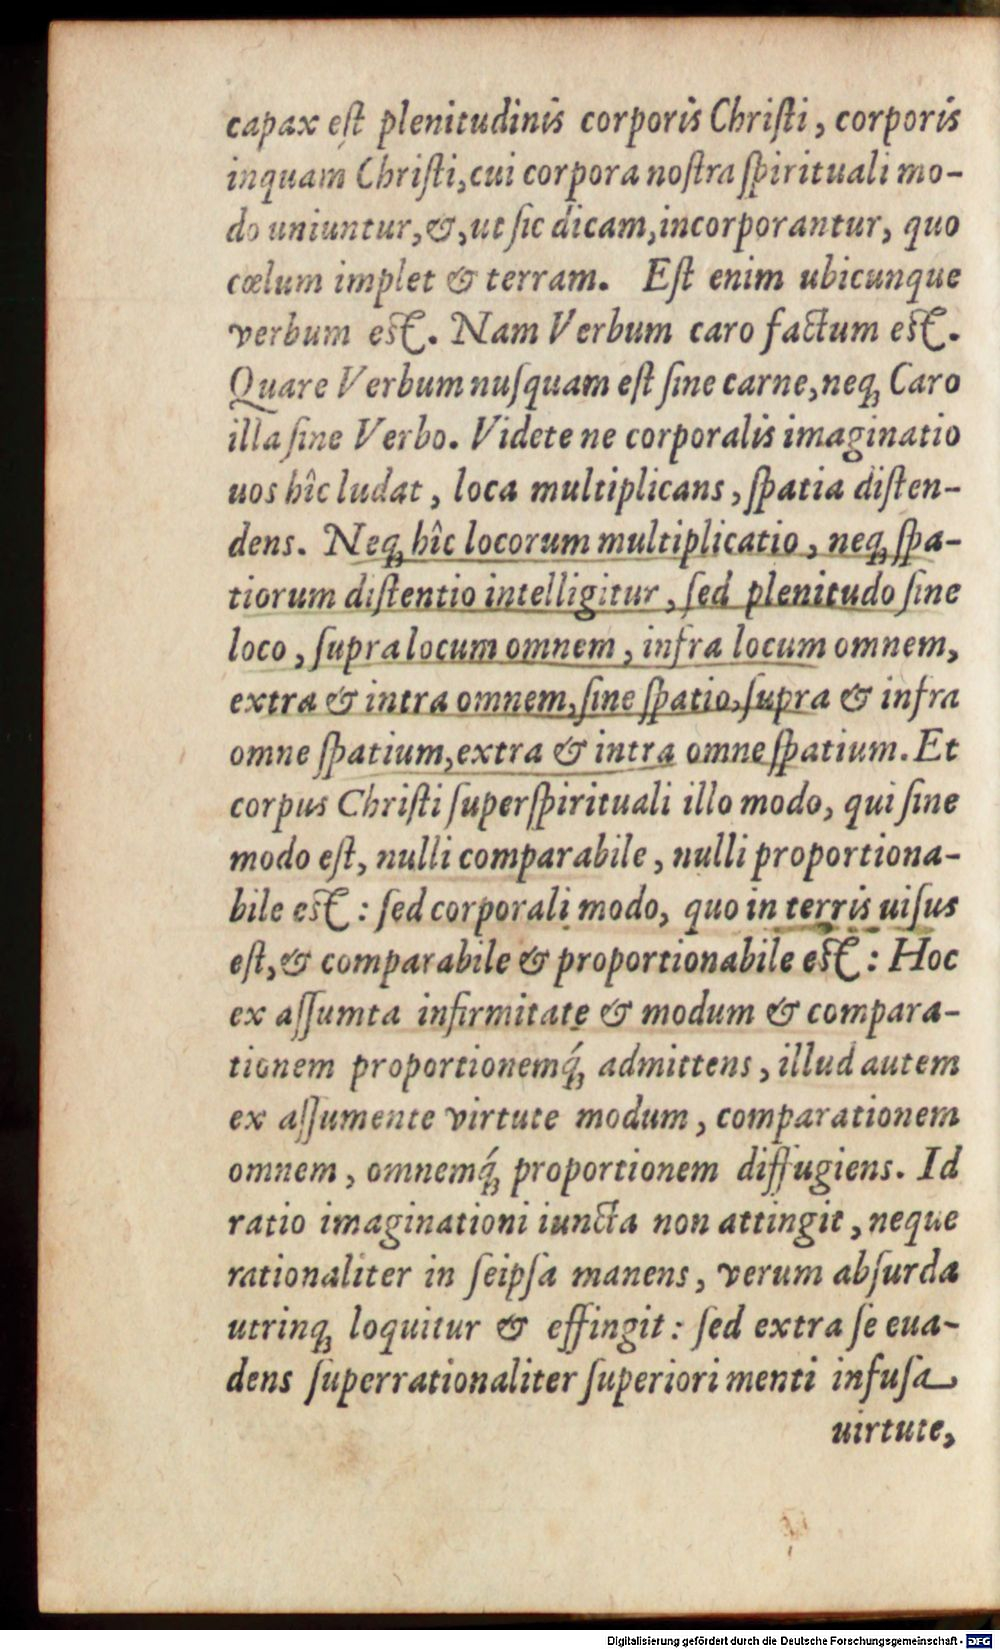 capax eſt plenitudinis corporis Chriſti, corporis
inquam Chriſti, cui corpora noſtra ſpirituali mo-
do uniuntur, &, ut ſic dicam, incorporantur, quo
cœlum implet & terram. Eſt enim ubicunque
verbum eſt. Nam Verbum caro factum eſt.
Quare Verbum nuſquam eſt ſine carne, neqꝫ Caro
illa ſine Verbo. Videte ne corporalis imaginatio
uos hîc ludat, loca multiplicans, ſpatia diſten-
dens. Neqꝫ hîc locorum multiplicatio, neqꝫ ſpa-
tiorum diſtentio intelligitur, ſed plenitudo ſine
loco, ſupra locum omnem, infra locum omnem,
extra & intra omnem, ſine ſpatio, ſupra & infra
omne ſpatium, extra & intra omne ſpatium. Et
corpus Chriſti ſuperſpirituali illo modo, qui ſine
modo eſt, nulli comparabile, nulli proportiona-
bile eſt: ſed corporali modo, quo in terris uiſus
eſt, & comparabile & proportionabile eſt: Hoc
ex aſſumta infirmitate & modum & compara-
tionem proportionemq́ꝫ admittens, illud autem
ex aſſumente virtute modum, comparationem
omnem, omnemq́ꝫ proportionem diffugiens. Id
ratio imaginationi iuncta non attingit, neque
rationaliter in ſeipſa manens, verum abſurda
utrinqꝫ loquitur & effingit: ſed extra ſe eua-
dens ſuperrationaliter ſuperiori menti infuſa
uirtute,
Digitalisierung gefördert durch die Deutsche Forschungsgemeinschaft - DFG